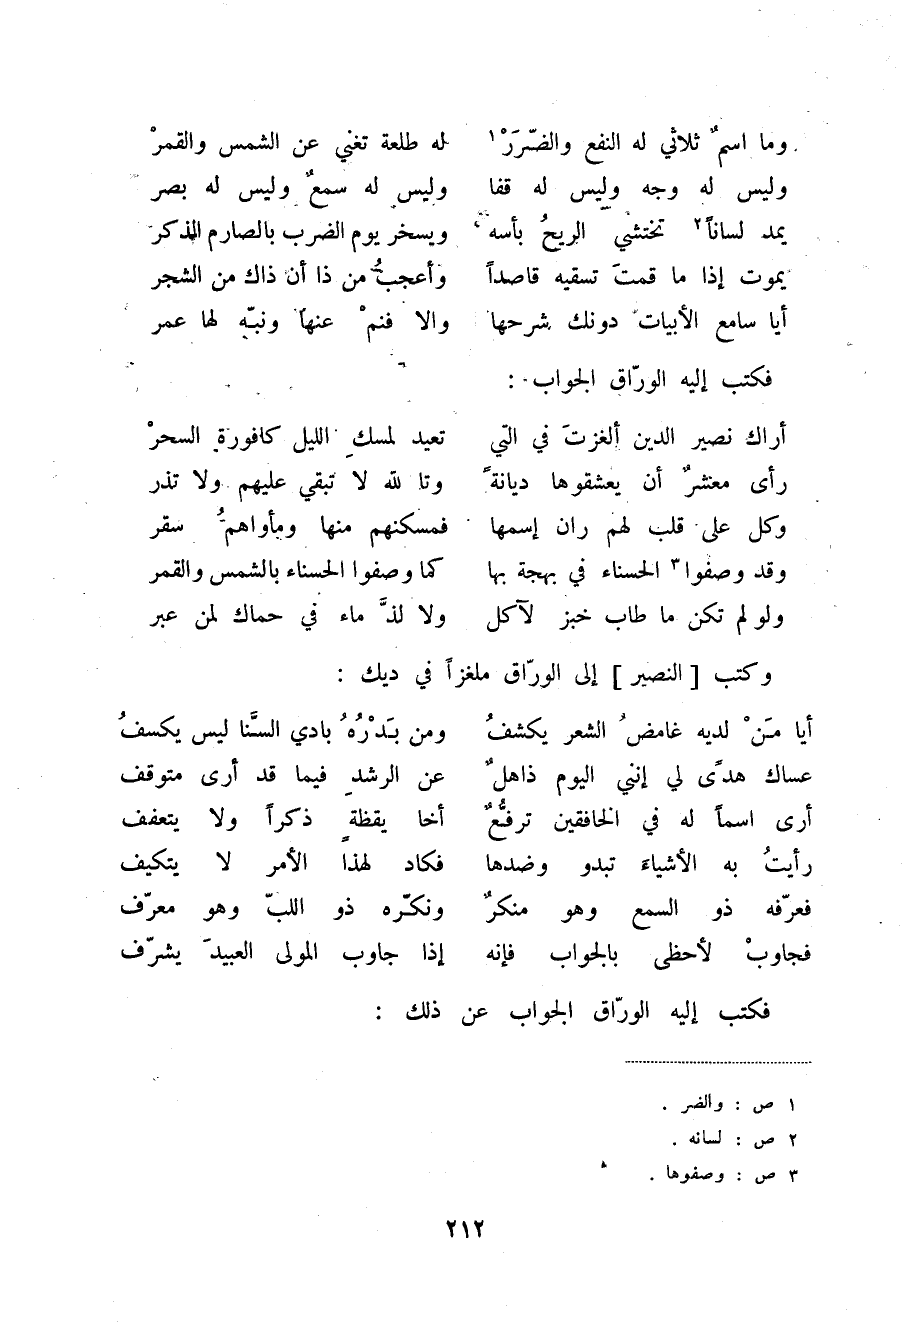 وما اسمٌ ثلاثي له النفع والضّرَرْ١ له طلعة تغني عن الشمس والقمرْ
وليس له وجه وليس له قفا وليس له سمعٌ وليس له بصر
يمد لساناً٢ تختشي الريحُ بأسه ويسخر يوم الضرب بالصارم الذكر
يموت إذا ما قمتَ تسقيه قاصداً وأعجبُ من ذا أن ذاك من الشجر
أيا سامع الأبيات دونك شرحها والا فنمْ عنها ونبّه لها عمر
فكتب إليه الورّاق الجواب :
أراك نصير الدين ألغزتَ في التي تعيد لمسكِ الليل كافورة السحرْ
رأى معشرٌ أن يعشقوها ديانةً وتا لله لا تبقي عليهم ولا تذر
وكل على قلب لهم ران إسمها فمسكنهم منها ومأواهمُ سقر
وقد وصفوا٣ الحسناء في بهجة بها كما وصفوا الحسناء بالشمس والقمر
ولو لم تكن ما طاب خبز لآكل ولا لذَّ ماء في حماك لمن عبر
وكتب [ النصير ] إلى الورّاق ملغزاً في ديك :
أيا مَنْ لديه غامضُ الشعر يكشفُ ومن بَدْرُهُ بادي السَّنا ليس يكسفُ
عساك هدًى لي إنني اليوم ذاهلٌ عن الرشدِ فيما قد أرى متوقف
أرى اسماً له في الخافقين ترفُّعٌ أخا يقظةٍ ذكراً ولا يتعفف
رأيتُ به الأشياءَ تبدو وضدها فكاد لهذا الأمر لا يتكيف
فعرّفه ذو السمع وهو منكرٌ ونكّره ذو اللبّ وهو معرّف
فجاوبْ لأحظى بالجواب فإنه إذا جاوب المولى العبيدَ يشرّف
فكتب إليه الورّاق الجواب عن ذلك :
١ ص : والضر .
٢ ص : لسانه .
٣ ص : وصفوها .
٢١٢